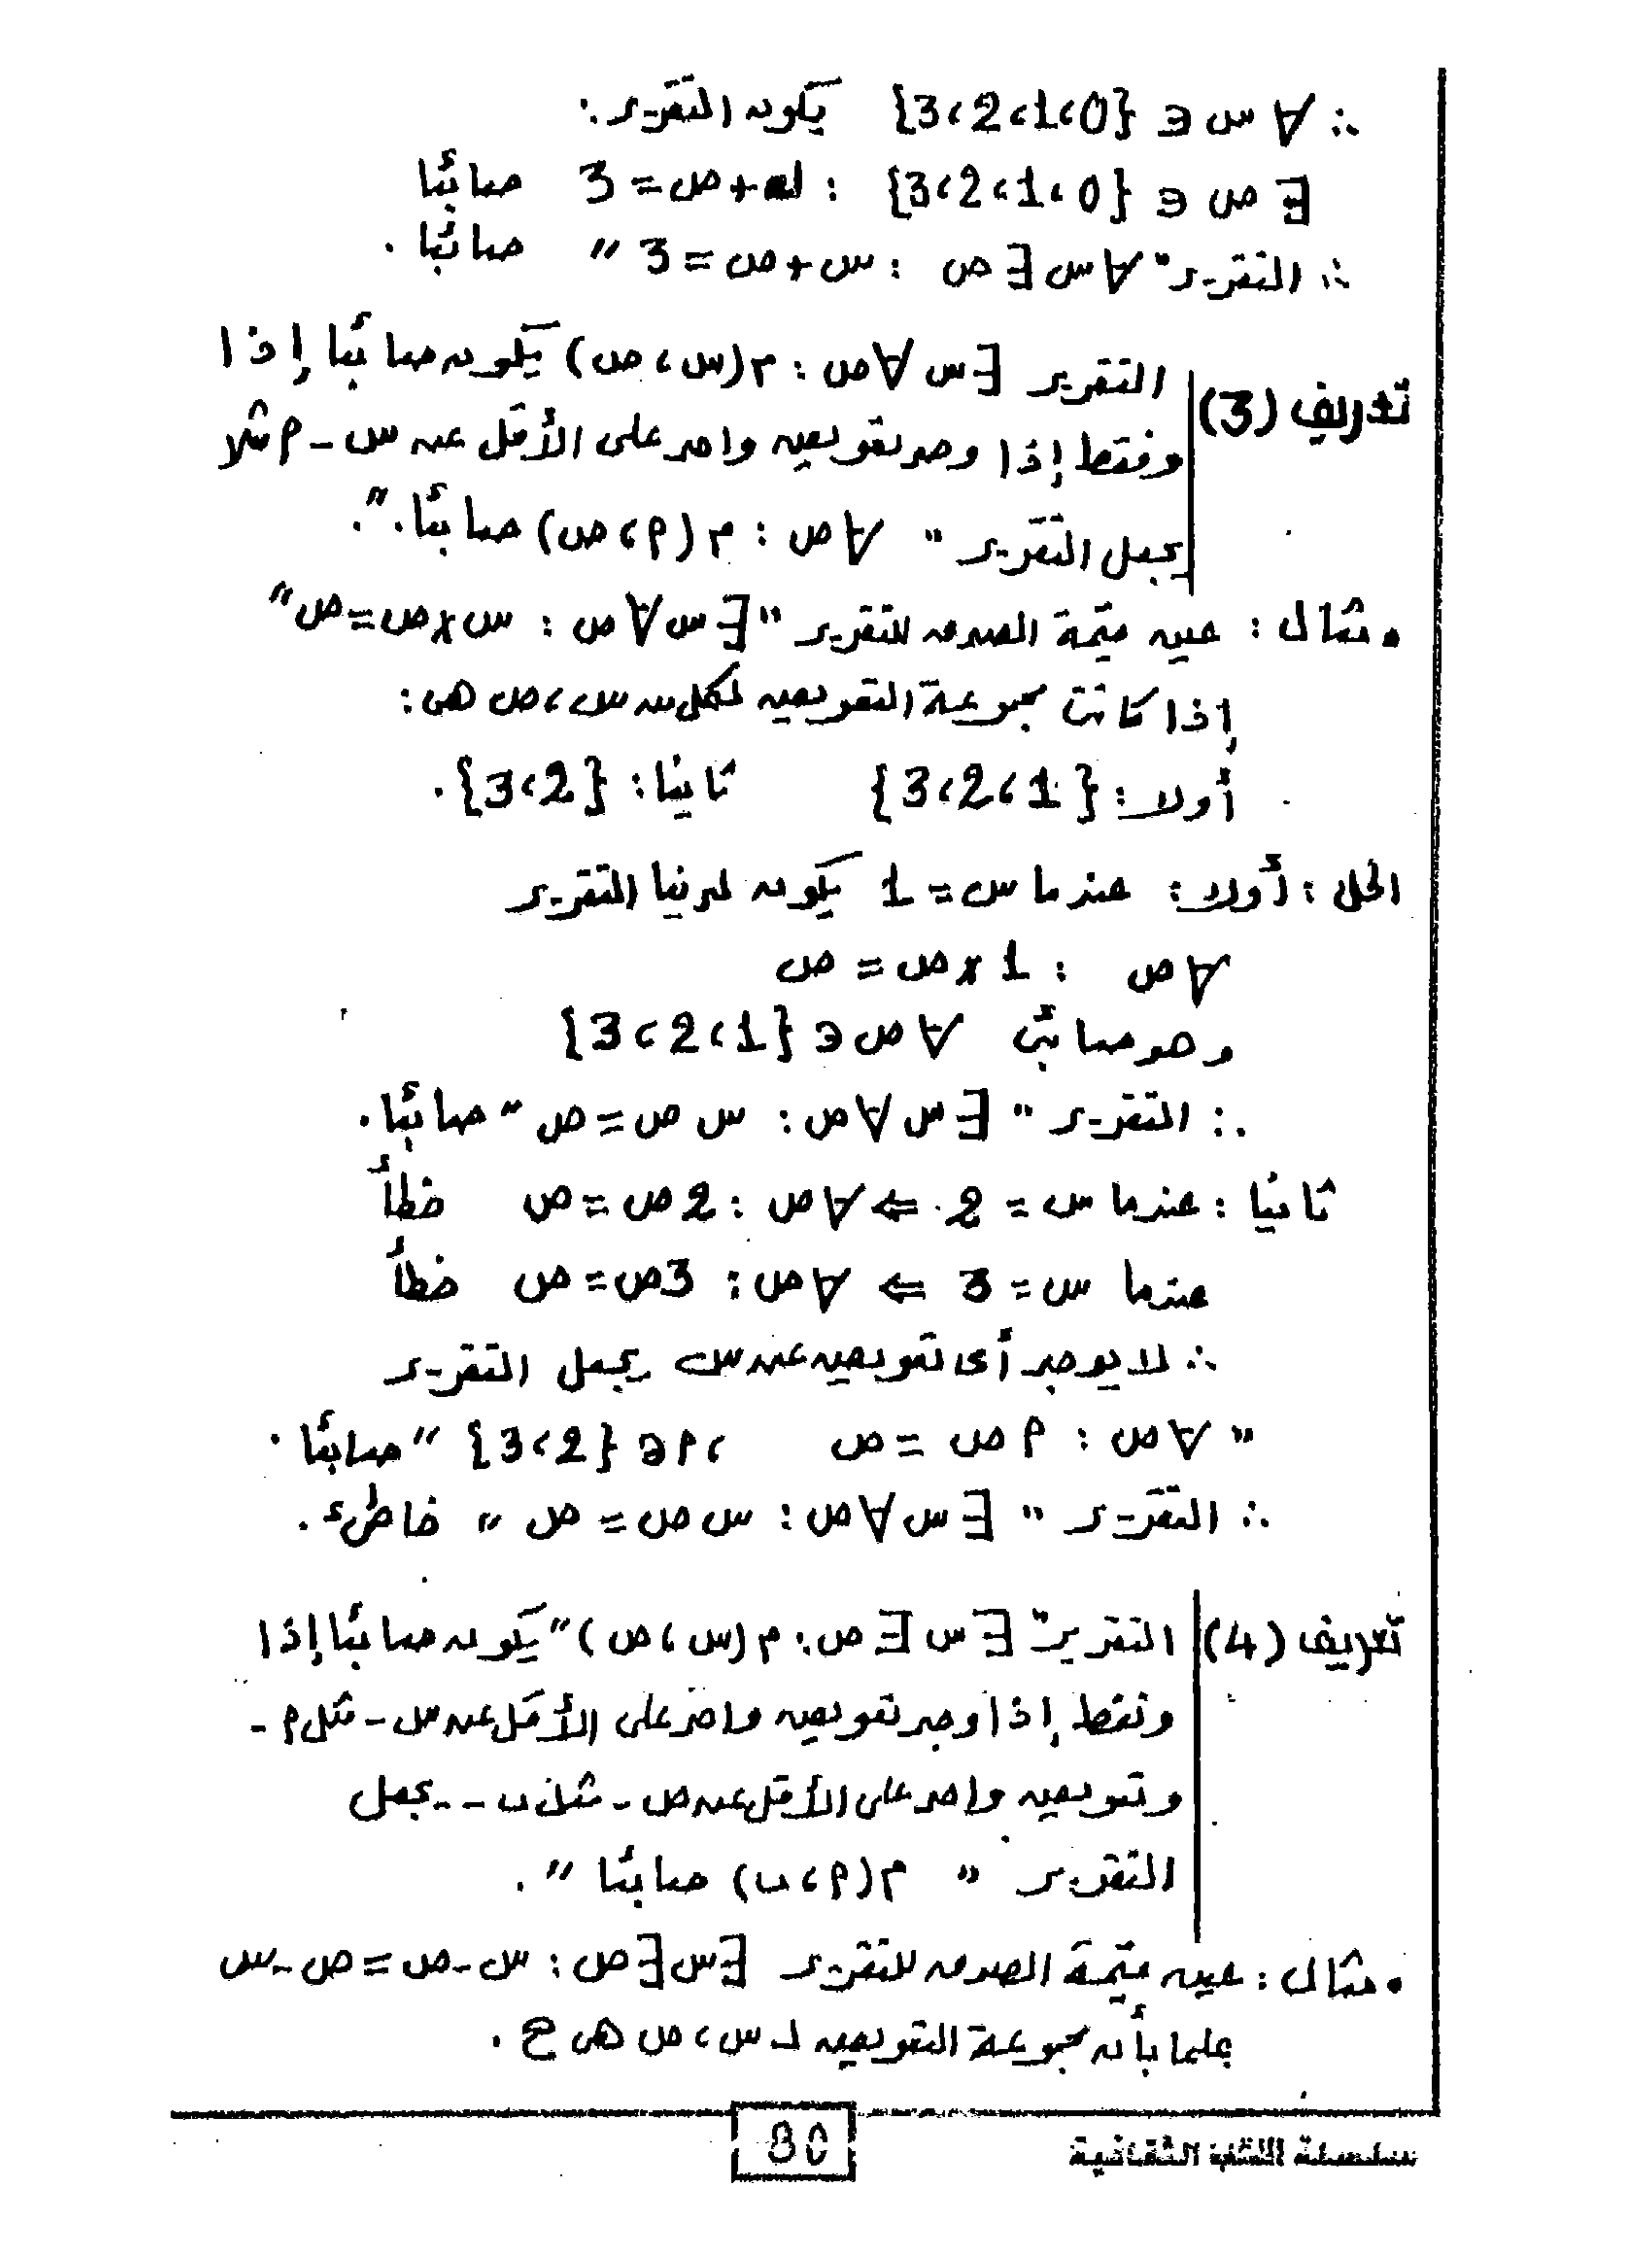 ∴ ∀ س ∈ {0، 1، 2، 3} يكون التقرير:
∃ ص ∈ {0، 1، 2، 3} : ك + ص = 3 صائبًا
∴ التقرير " ∀ س ∃ ص : س + ص = 3 " صائبًا .
تعريف (3) التقرير ∃ س ∀ ص : م (س ، ص) يكون صائبًا إذا
وفقط إذا وجد تعويض واحد على الأقل عن س - م مثلا
يجعل التقرير " ∀ ص : م (م ، ص) صائبًا . " .
• مثال : عين قيمة الصدق للتقرير " ∃ س ∀ ص : س × ص = ص "
إذا كانت مجموعة التعويض لكل من س ، ص هى :
أولا : {1 ، 2 ، 3} ثانيا : {2 ، 3} .
الحل : أولا : عندما س = 1 يكون لدينا التقرير
∀ ص : 1 × ص = ص
وهو صائب ∀ ص ∈ {1 ، 2 ، 3}
∴ التقرير " ∃ س ∀ ص : س ص = ص " صائبًا .
ثانيا : عندما س = 2 ⇐ ∀ ص : 2 ص = ص خطأ
عندما س = 3 ⇐ ∀ ص : 3 ص = ص خطأ
∴ لا يوجد أى تعويض عن س يجعل التقرير
" ∀ ص : م ص = ص ، م ∈ {2 ، 3} " صائبًا .
∴ التقرير " ∃ س ∀ ص : س ص = ص " خاطئ .
تعريف (4) التقرير " ∃ س ∃ ص : م (س ، ص) " يكون صائبًا إذا
وفقط إذا وجد تعويض واحد على الأقل عن س - مثل م -
وتعويض واحد على الأقل عن ص - مثل ب - يجعل
التقرير " م (م ، ب) صائبًا " .
• مثال : عين قيمة الصدق للتقرير ∃ س ∃ ص : س - ص = ص - س
علما بأن مجموعة التعويض لـ س ، ص هى ح .
80
سلسلة الكتب الثقافية